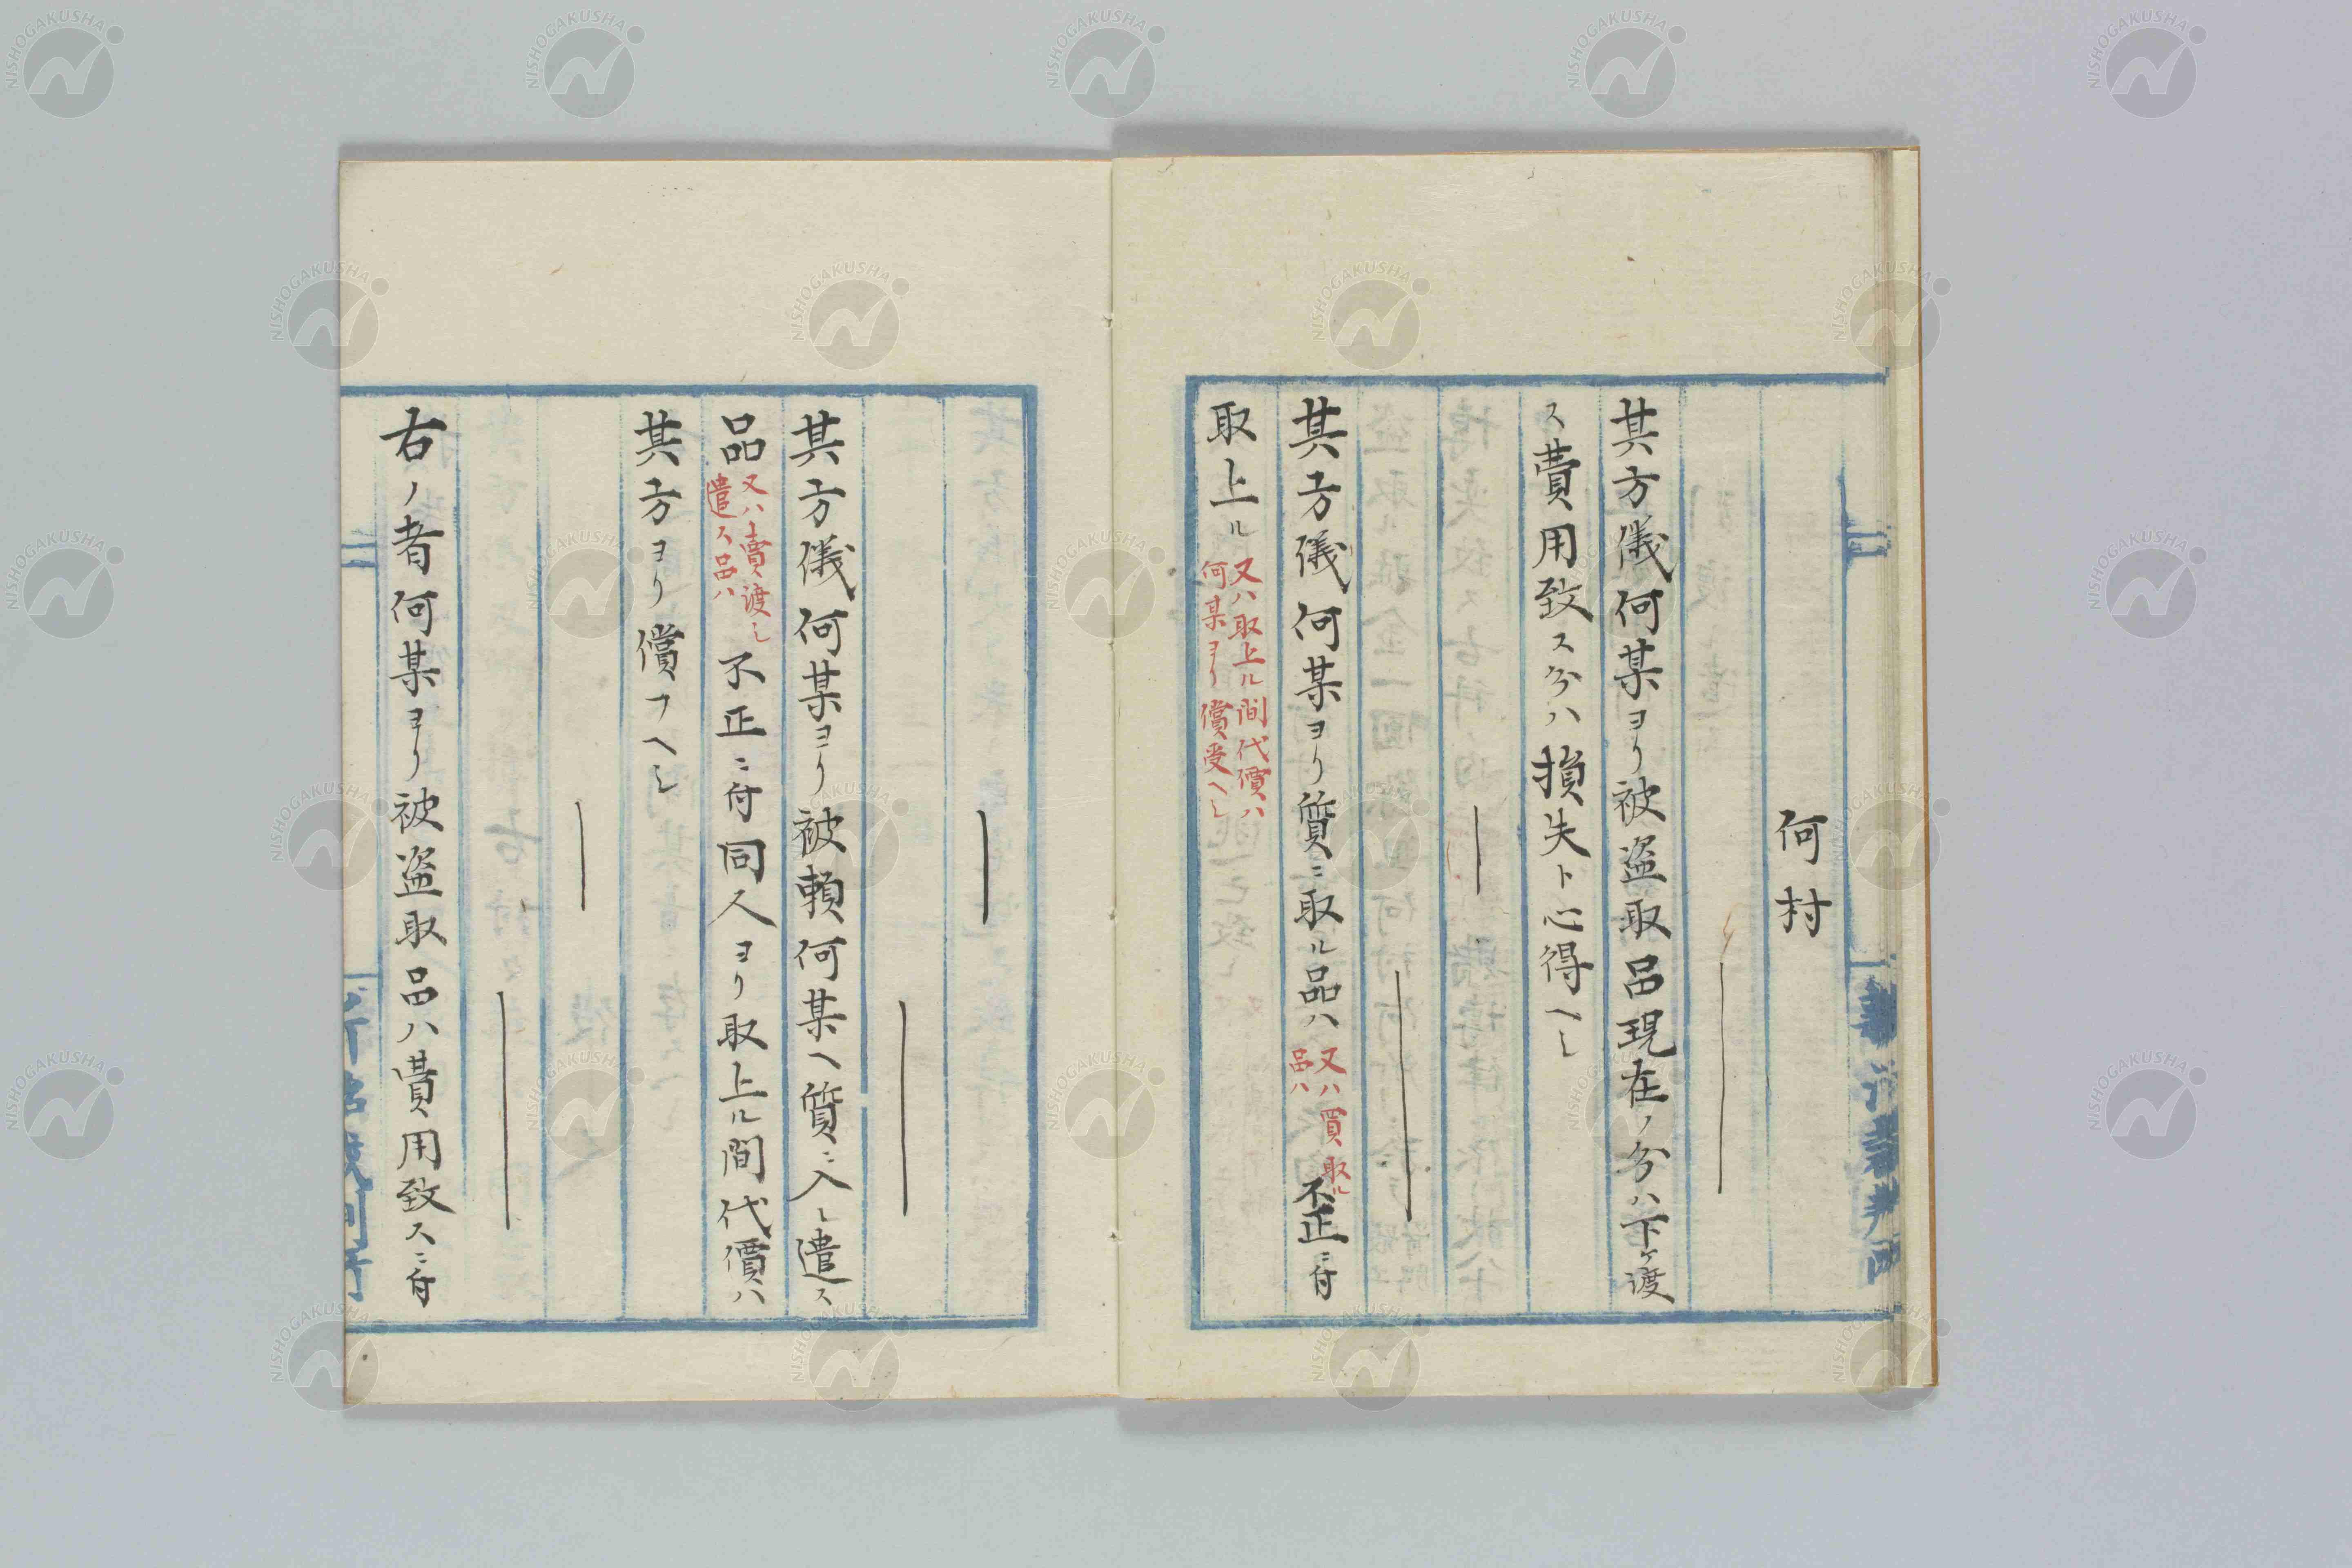 何村
其方儀何某ヨリ被盗取品現在ノ分ハ下ケ渡
ス費用致ス分ハ損失ト心得ヘシ
其方儀何某ヨリ質ニ取ル品ハ
又ハ買取ル
品ハ
不正ニ付
取上ル
又ハ取上ル間代價ハ
何某ヨリ償受ヘシ
其方儀何某ヨリ被頼何某ヘ質ニ入レ遣ス
品
又ハ賣渡シ
遣ス品ハ
不正ニ付同人ヨリ取上ル間代價ハ
其方ヨリ償フヘシ
右ノ者何某ヨリ被盗取品ハ費用致スニ付
NISHOGAKUSHA